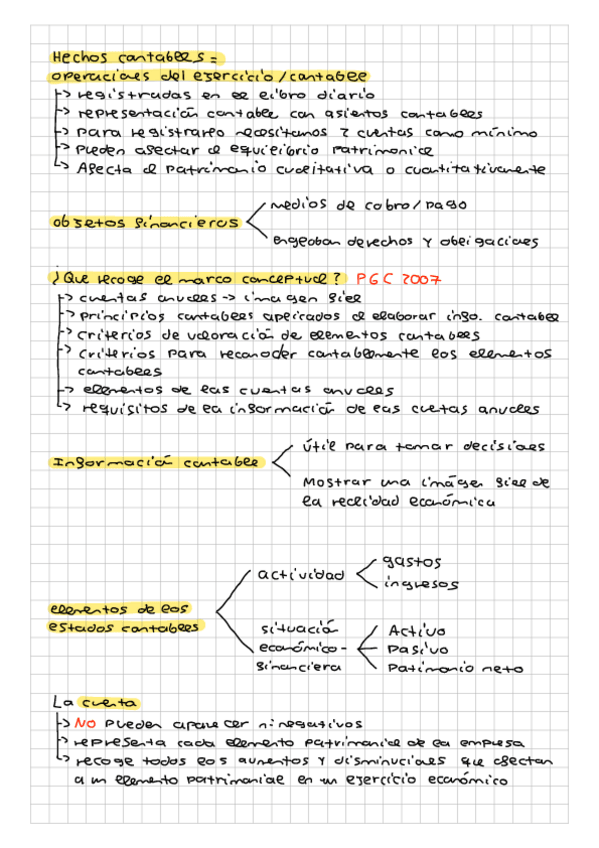 Hechos contables =
operaciones del ejercicio/contable
-> registradas en el libro diario
-> representación contable con asientos contables
-> para registrarlo necesitamos 2 cuentas como mínimo
-> pueden afectar al equilibrio patrimonial
-> Afecta al patrimonio cualitativa o cuantitativamente
objetos financieros
medios de cobro/pago
engloban derechos y obligaciones
¿Que recoge el marco conceptual? PGC 2007
-> cuentas anuales -> imagen fiel
-> principios contables aplicados al elaborar info. contable
-> criterios de valoración de elementos contables
-> criterios para reconocer contablemente los elementos
contables
-> elementos de las cuentas anuales
-> requisitos de la información de las cuetas anuales
Información contable
útil para tomar decisiones
Mostrar una imágen fiel de
la realidad económica
elementos de los
estados contables
actividad
gastos
ingresos
situación
económico-
financiera
Activo
Pasivo
Patimonio neto
La cuenta
-> NO pueden aparecer nº negativos
-> representa cada elemento patrimonial de la empresa
-> recoge todos los aumentos y disminuciones que afectan
a un elemento patrimonial en un ejercicio económico